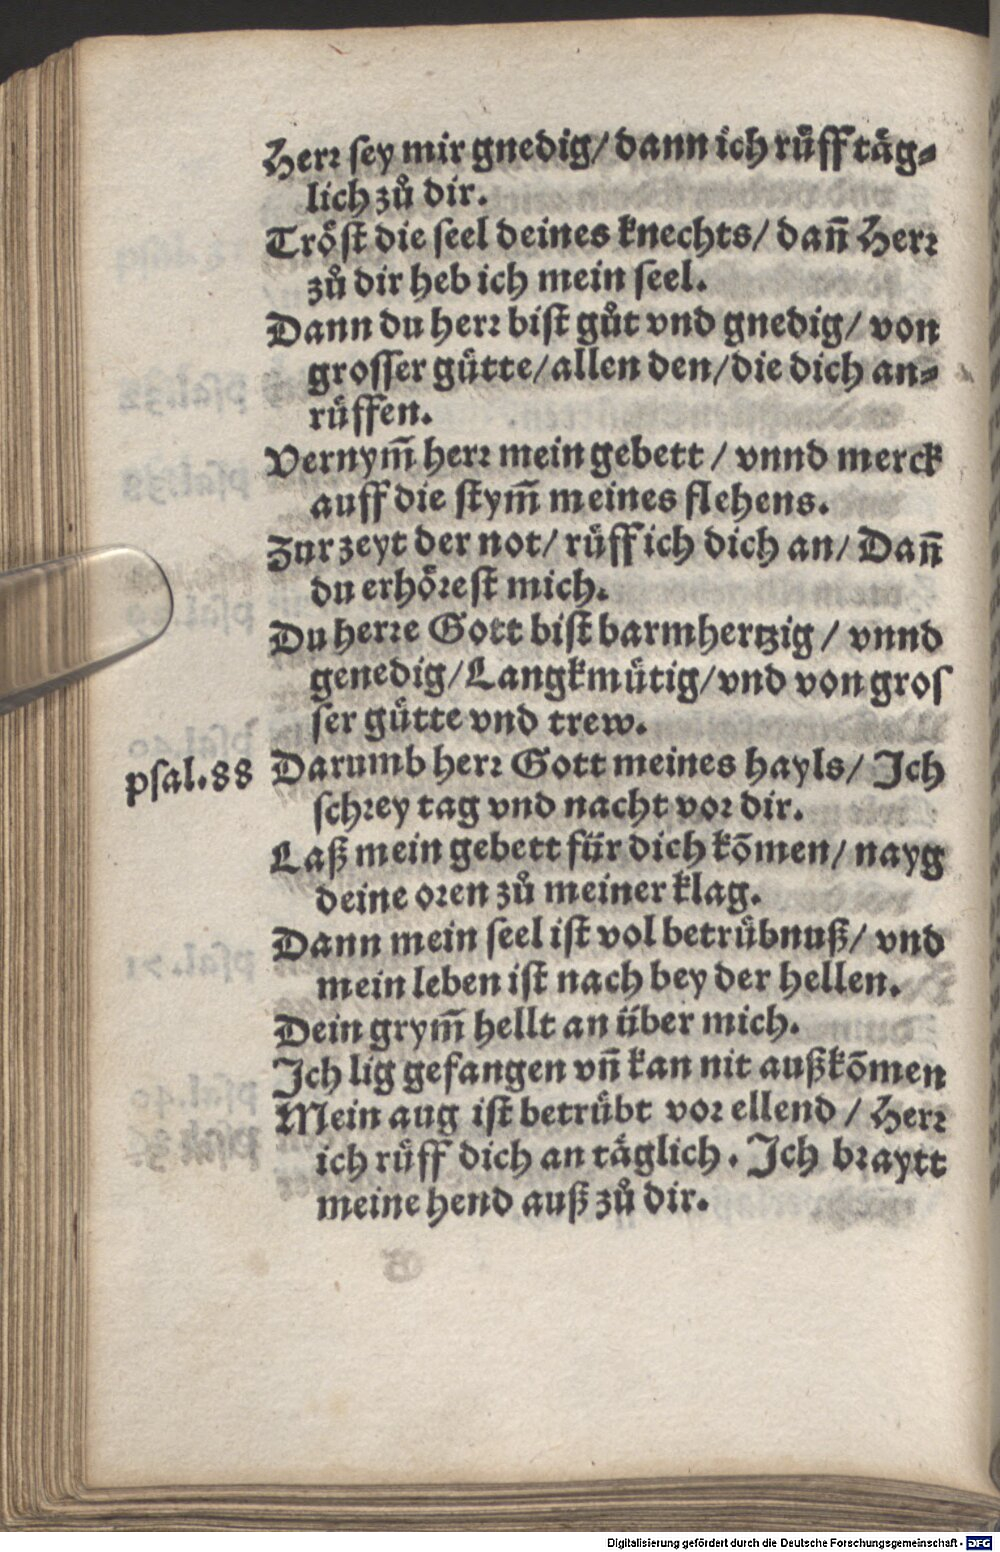 Herr ſey mir gnedig/ dann ich rüff täg⸗
lich zů dir.
Tröſt die ſeel deines knechts/ dañ Herr
zů dir heb ich mein ſeel.
Dann du herr biſt gůt vnd gnedig/ von
groſſer gütte/ allen den/ die dich an⸗
rüffen.
Vernym̃ herr mein gebett / vnnd merck
auff die ſtym̃ meines flehens.
Zur zeyt der not/ rüff ich dich an/ Dañ
du erhöreſt mich.
Du herre Gott biſt barmhertzig / vnnd
genedig/ Langkmütig/ vnd von groſ
ſer gütte vnd trew.
pſal.88 Darumb herr Gott meines hayls/ Ich
ſchrey tag vnd nacht vor dir.
Laß mein gebett für dich kõmen/ nayg
deine oren zů meiner klag.
Dann mein ſeel iſt vol betrübnuß/ vnd
mein leben iſt nach bey der hellen.
Dein grym̃ hellt an über mich.
Ich lig gefangen vñ kan nit außkõmen
Mein aug iſt betrübt vor ellend / Herr
ich rüff dich an täglich. Ich braytt
meine hend auß zů dir.
Digitalisierung gefördert durch die Deutsche Forschungsgemeinschaft - DFG